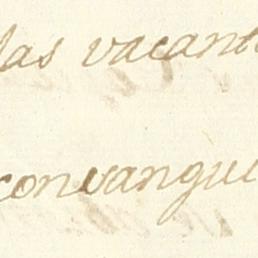 las vacant
convangui